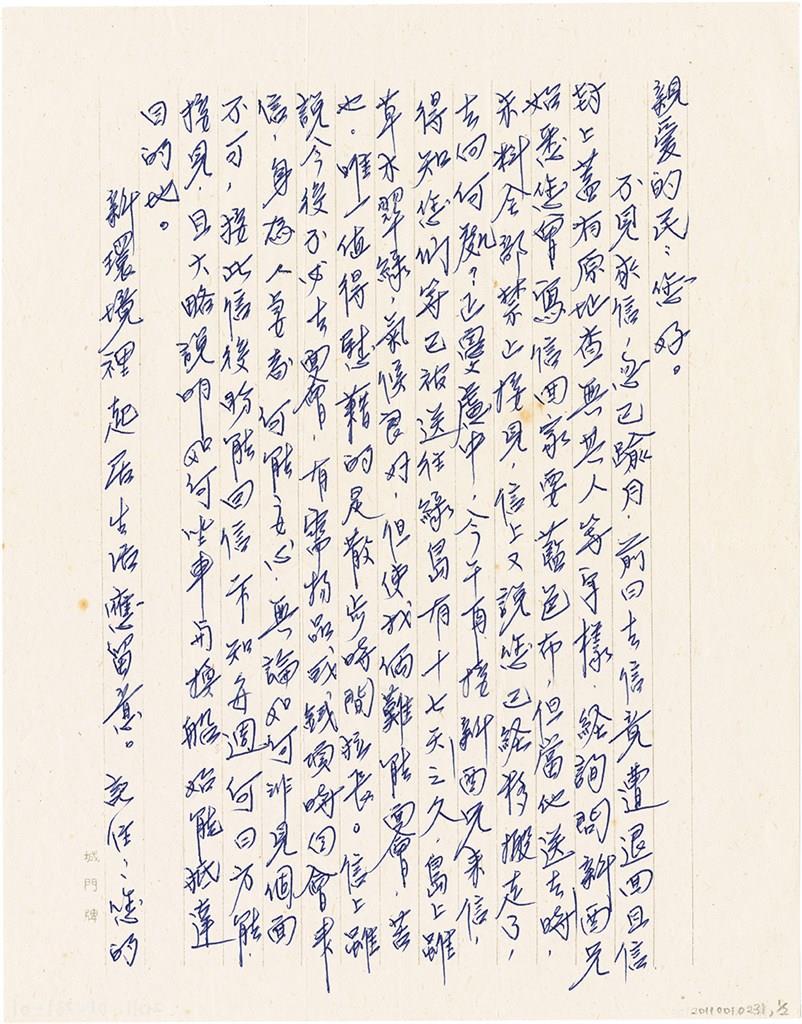 親愛的民：您好。
不見來信，忽已踰月，前曰去信竟遭退回且信
封上蓋有原地查無其人等字樣．経詢問新酉兄
始悉您曾寫信回家要藍色布，但當他送去時，
未料全部禁止接見，信上又說您已経移搬走了，
去向何處？正憂慮中，今午再接新酉兄來信，
得知您們等已被送往綠島有十七天之久，島上雖
草木翠綠，氣候良好，但使我倆難能面會，苦
也。唯一值得慰藉的是散步時間拉長。信上雖
說今後不必去面會，有需物品或錢項時回會來
信，身為人妻者何能安心，無論如何非見個面
不可，接此信後盼能回信示知每週何日方能
接見，且大略說明如何坐車再換船始能抵達
目的地。
新環境裡起居生活應留意。記住：您的
城門牌
2011.001.0231, 1/2